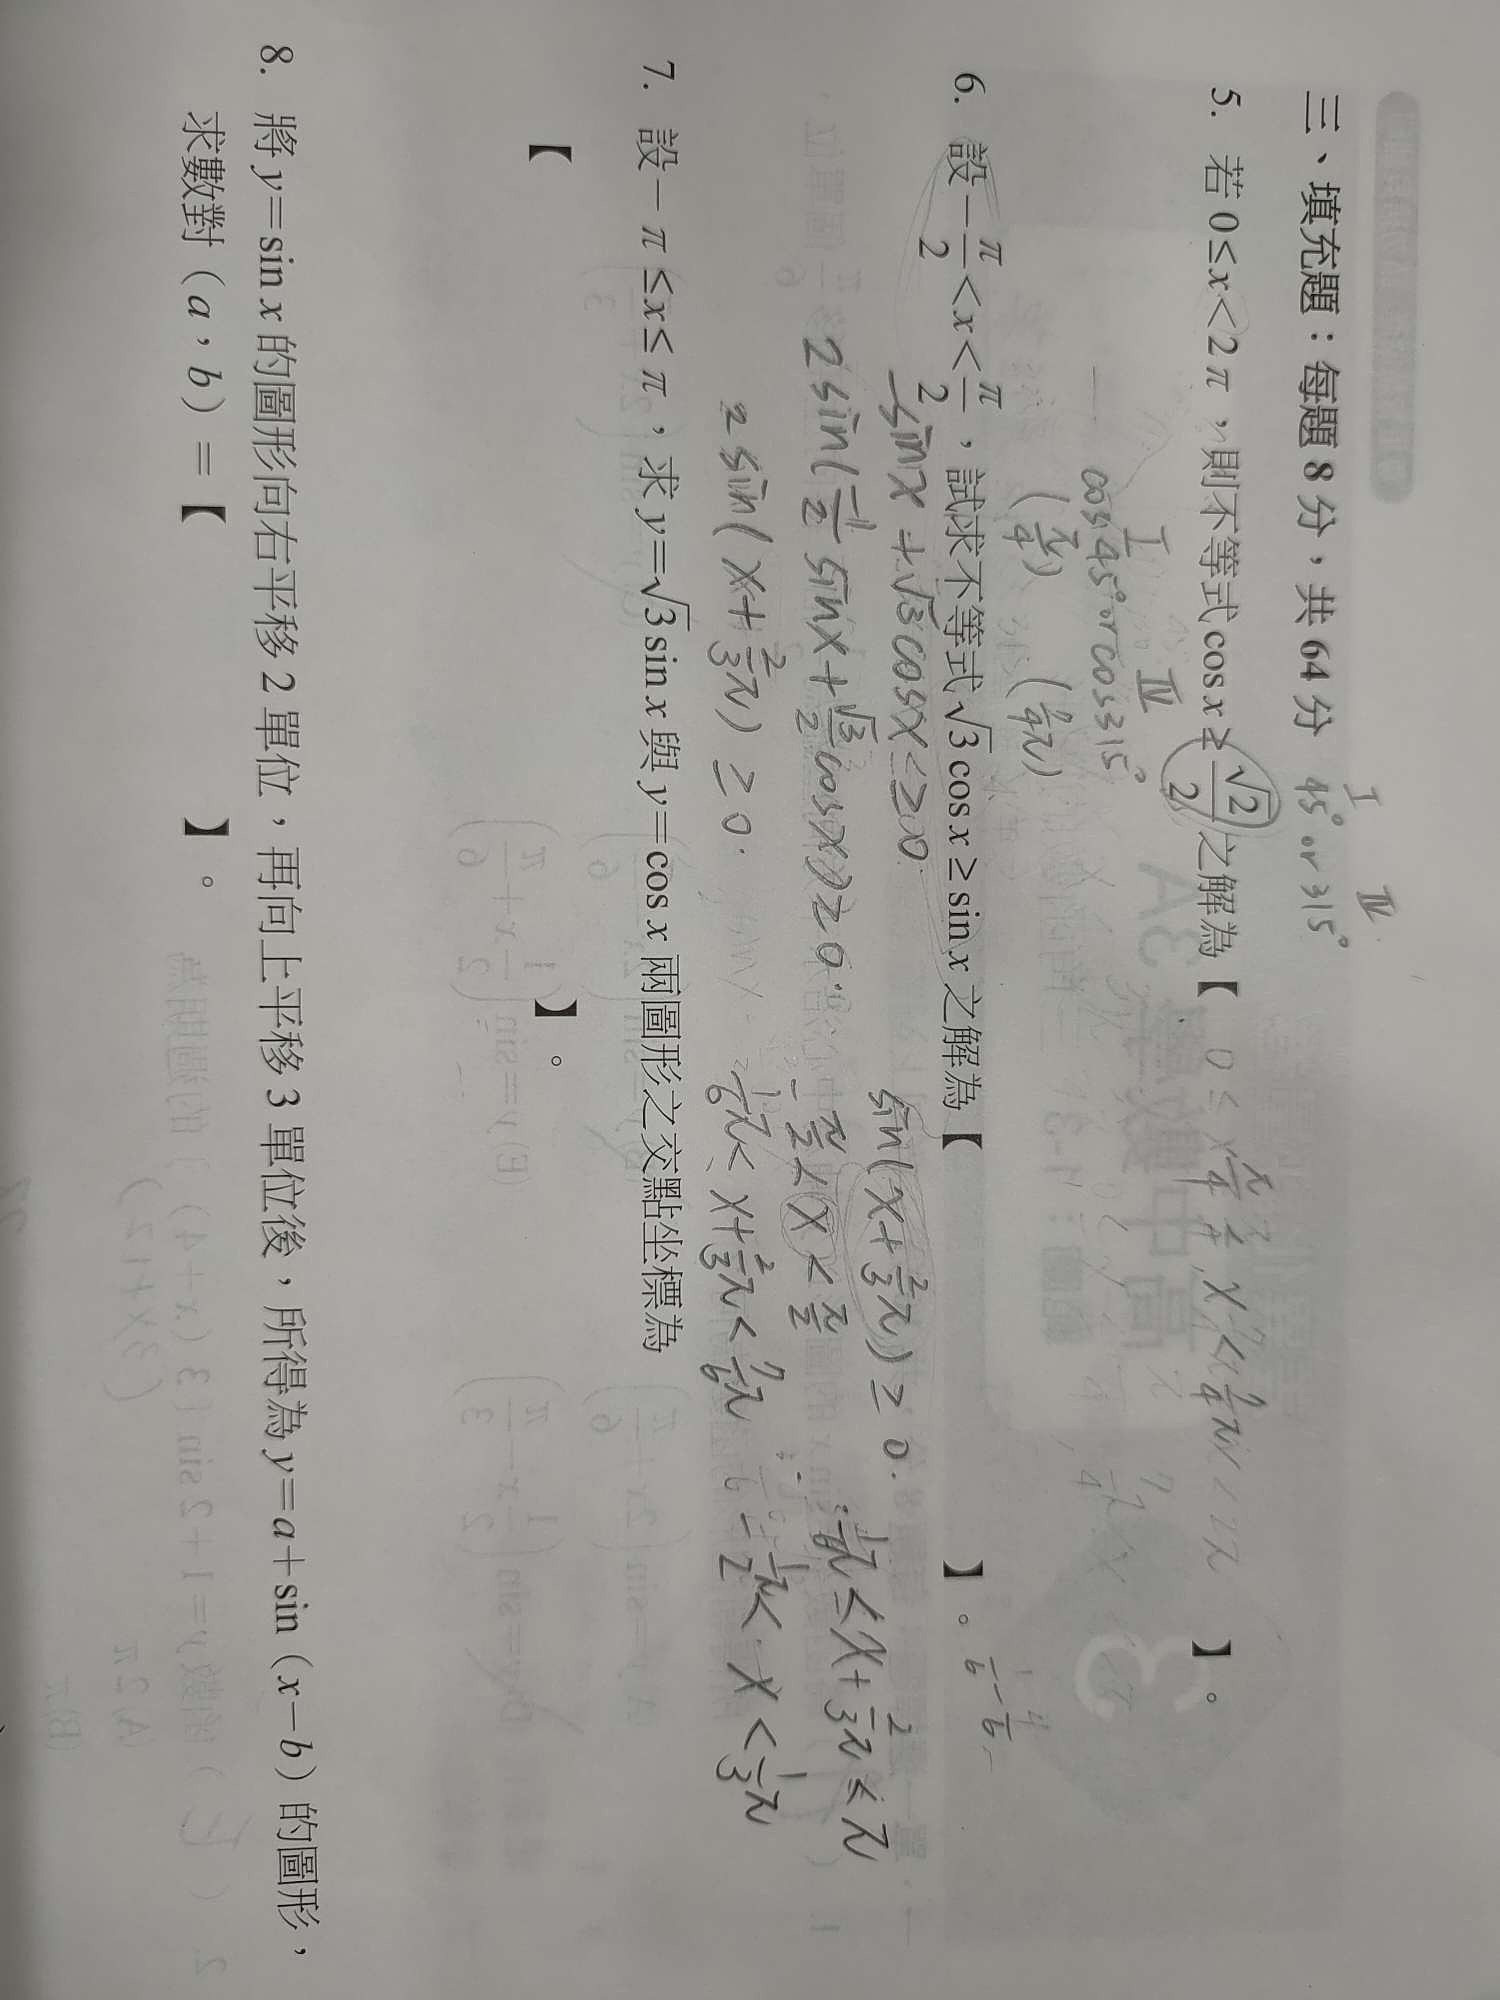 三、填充題：每題 8 分，共 64 分
45° or 315°
I IV
5. 若 0≤x<2π，則不等式 cos x ≥ √2/2 之解為【 0 ≤ x ≤ π/4 , 7/4π ≤ x < 2π 】。
I IV
cos 45° or cos 315°
(π/4) (7/4π)
6. 設 −π/2<x<π/2，試求不等式 √3 cos x ≥ sin x 之解為【 】。
−sin x + √3 cos x ≥ 0.
sin(x+2/3π) ≥ 0.
2 sin(−1/2 sin x + √3/2 cos x) ≥ 0.
−π/2 < x < π/2
1/6π ≤ x+2/3π ≤ π
2 sin(x+2/3π) ≥ 0.
1/6π < x+2/3π < 7/6π
−1/2π < x < 1/3π
7. 設 −π ≤x≤ π，求 y=√3 sin x 與 y=cos x 兩圖形之交點坐標為
【 】。
8. 將 y=sin x 的圖形向右平移 2 單位，再向上平移 3 單位後，所得為 y=a+sin（x−b）的圖形，
求數對（a，b）=【 】。